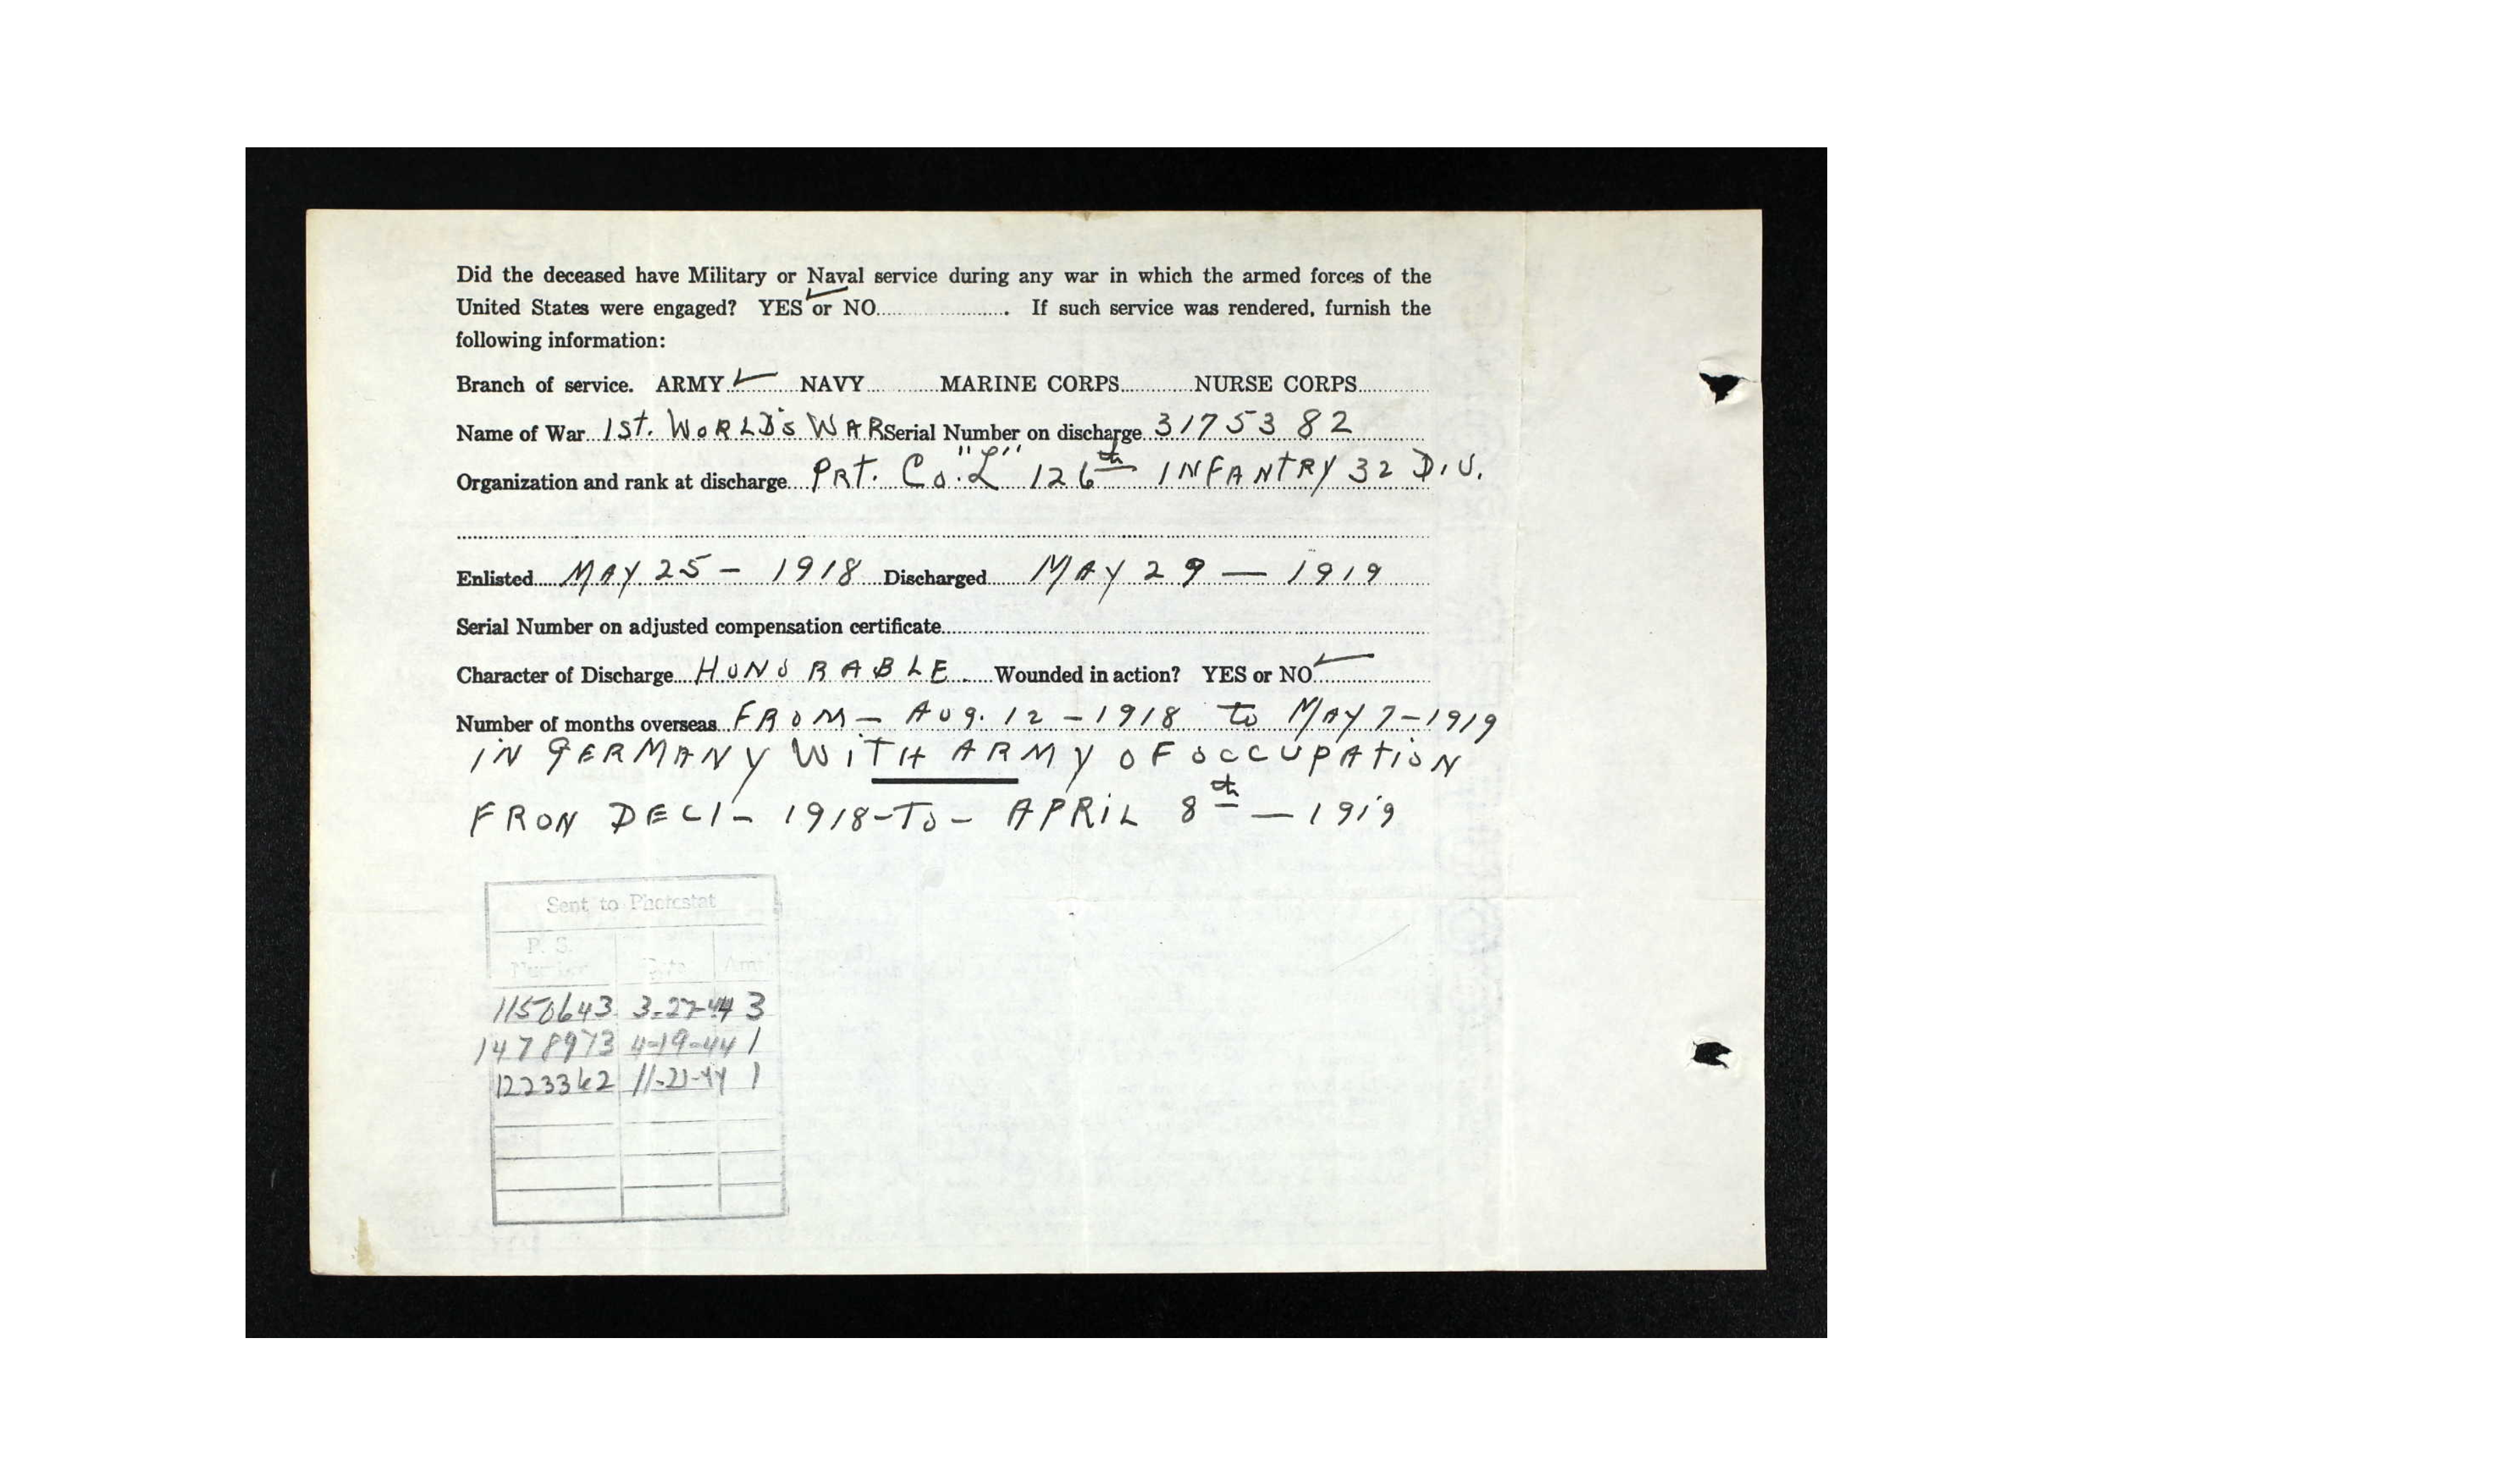 Did the deceased have Military or Naval service during any war in which the armed forces of the
United States were engaged? YES ✓ or NO.................... . If such service was rendered, furnish the
following information:
Branch of service. ARMY ✓ NAVY............MARINE CORPS............NURSE CORPS............
Name of War 1st. WORLD'S WAR Serial Number on discharge 3175382
Organization and rank at discharge PRT. Co. "L" 126th INFANTRY 32 DIV.
Enlisted MAY 25 - 1918 Discharged MAY 29 — 1919
Serial Number on adjusted compensation certificate............
Character of Discharge HONORABLE Wounded in action? YES or NO ✓
Number of months overseas FROM - AUG. 12 - 1918 to MAY 7 - 1919
IN GERMANY WITH ARMY OF OCCUPATION
FRON DEC 1 - 1918 - To - APRIL 8th — 1919
Sent to Photostat
P. S.
Number Date Amt
1150643 3-27-44 3
1478973 4-19-44 1
1223362 11-21-44 1